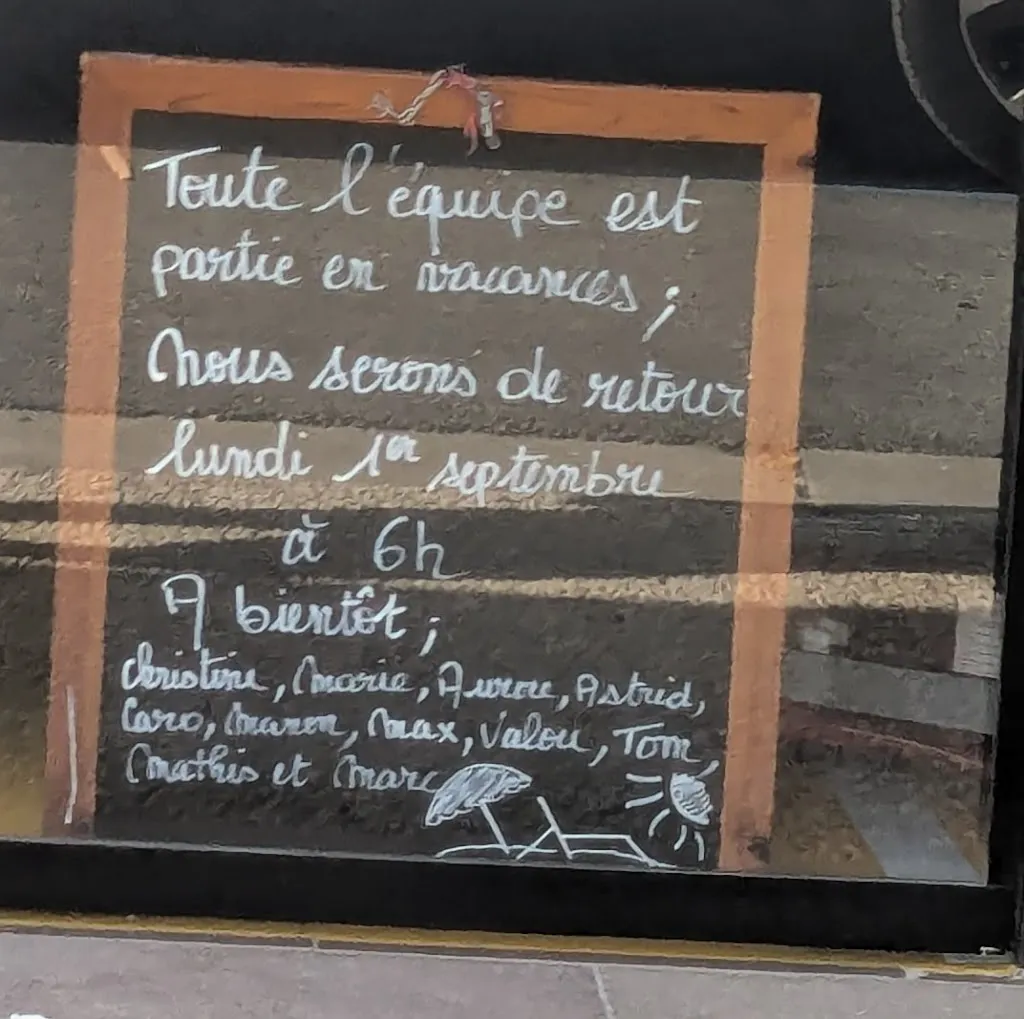 Toute l'équipe est
partie en vacances ;
Nous serons de retour
lundi 1er septembre
à 6h
A bientôt ;
Christine, Marie, Aurore, Astrid,
Caro, Manon, Max, Valou, Tom,
Mathis et Marc